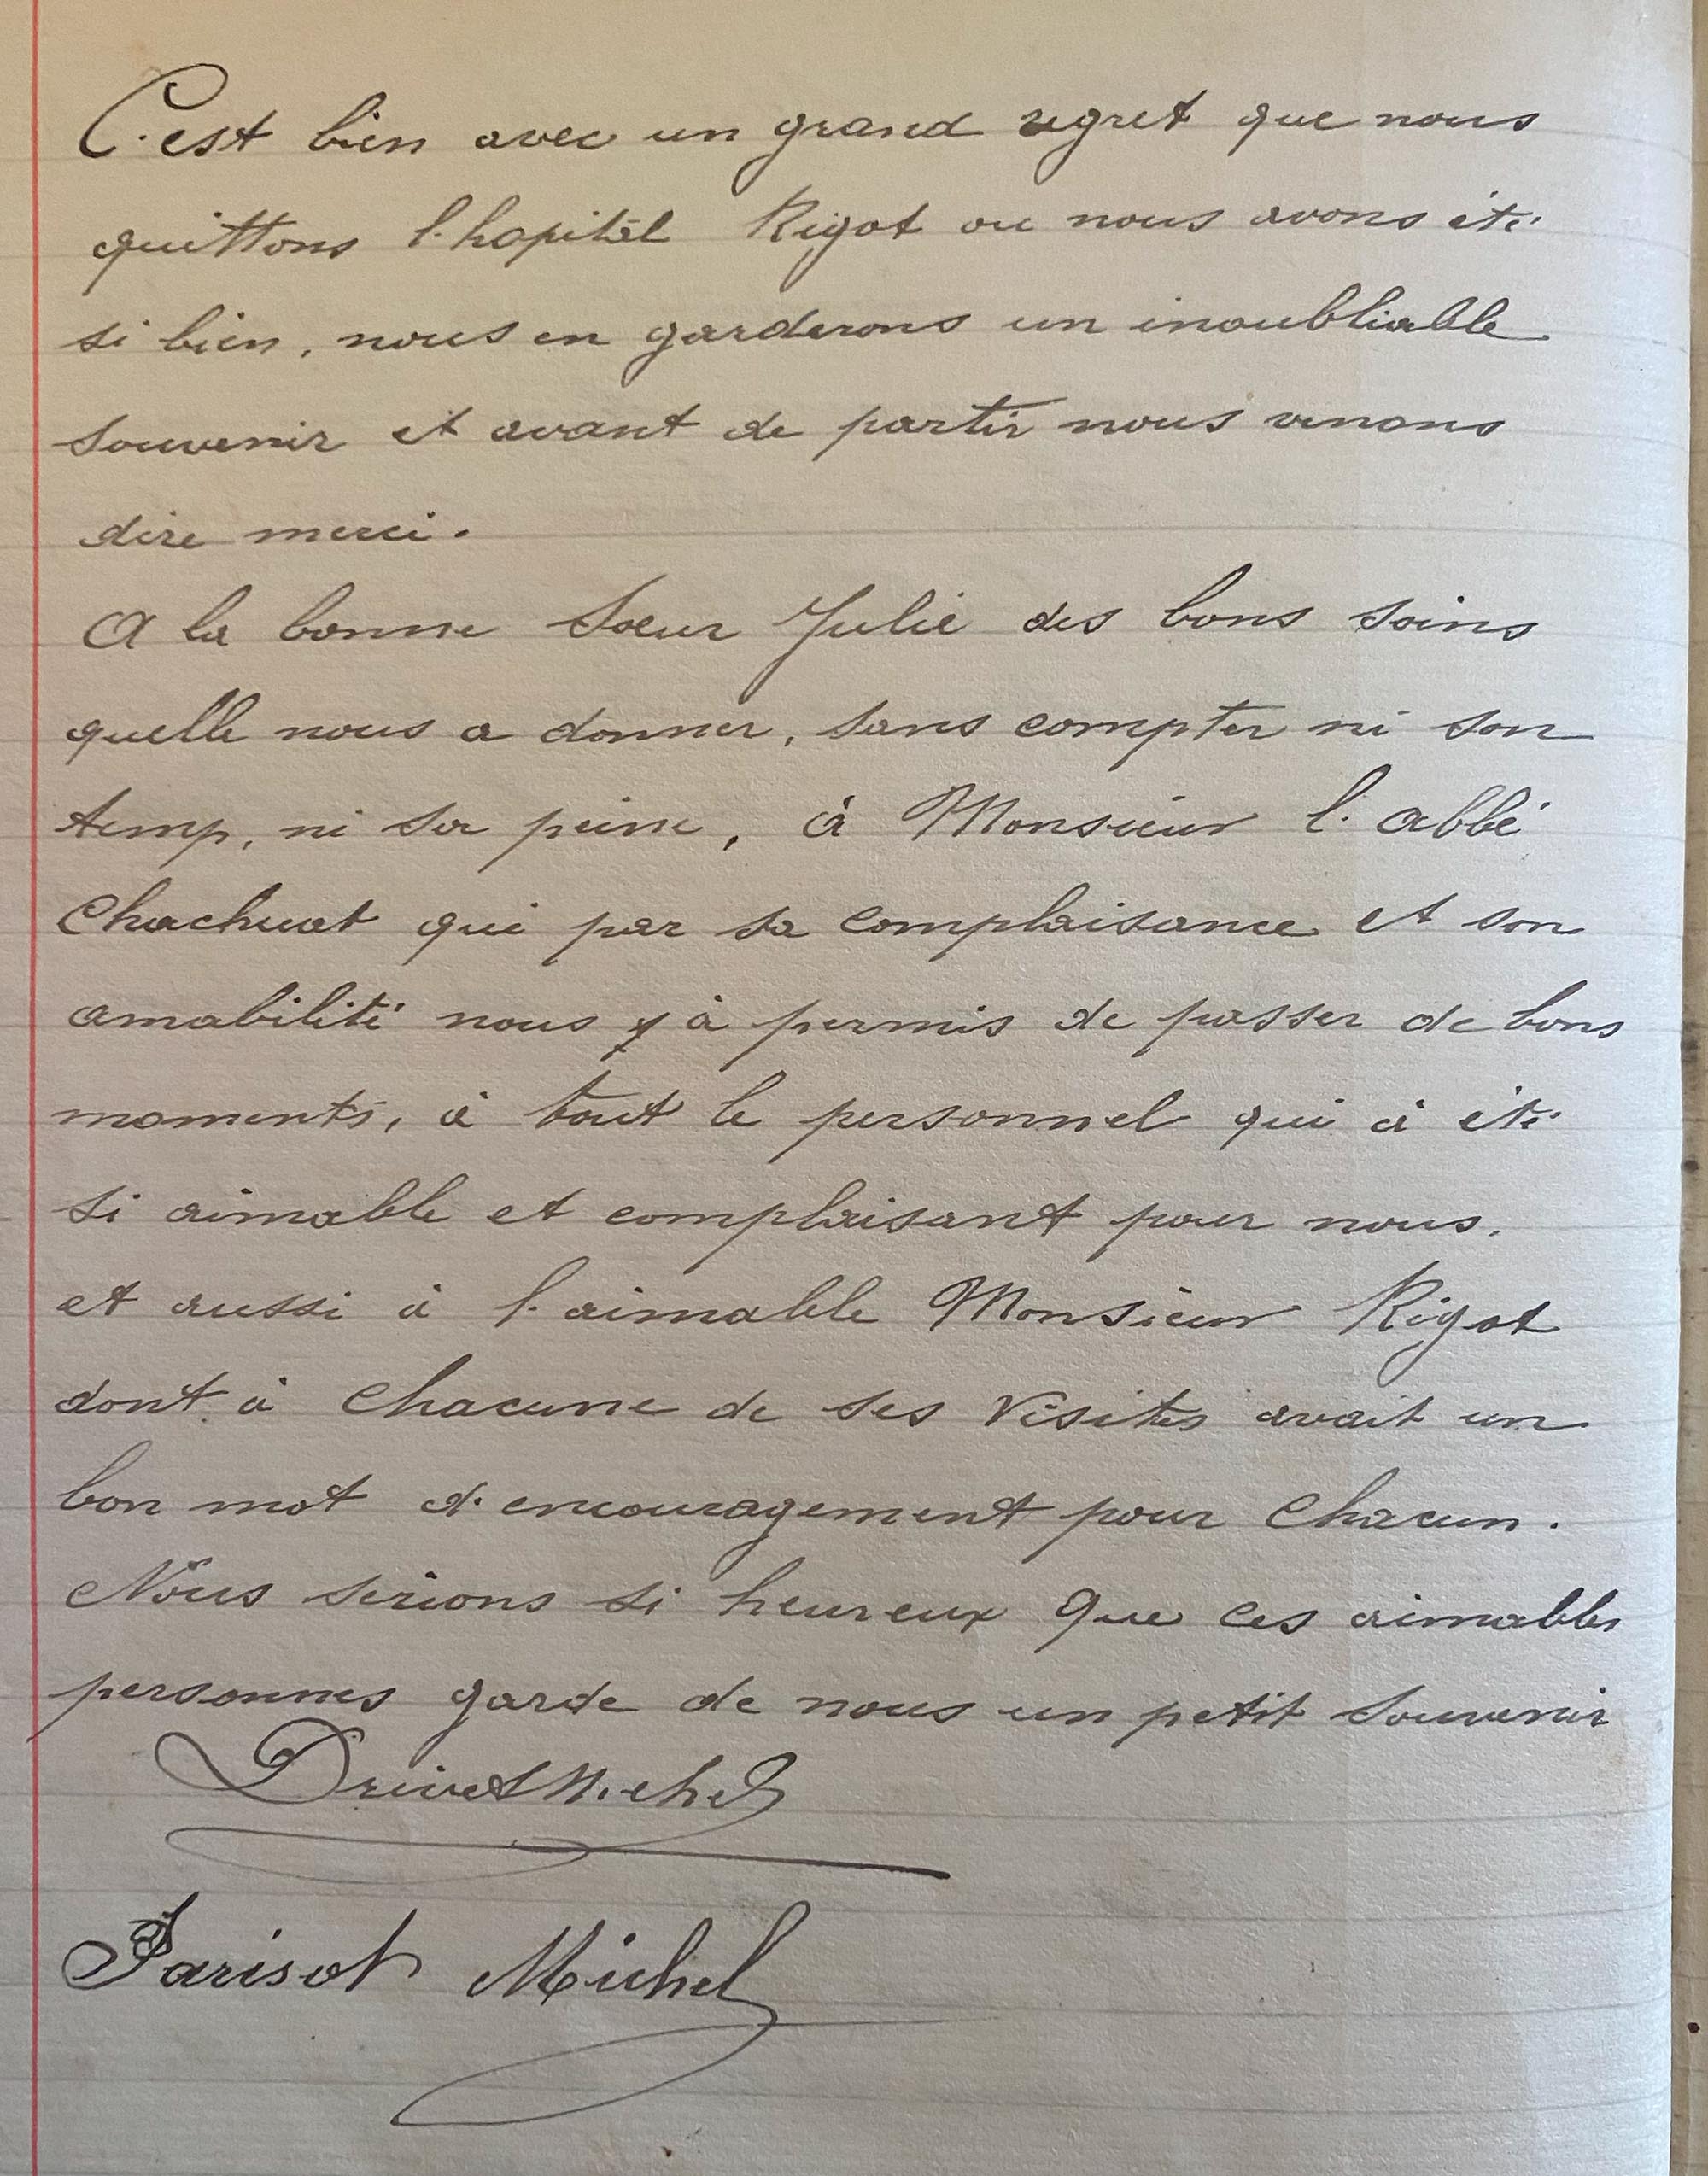 C'est bien avec un grand regret que nous
quittons l'hopital Rigot ou nous avons été
si bien, nous en garderons un inoubliable
souvenir et avant de partir nous venons
dire merci.
A la bonne Sœur Julie des bons soins
quelle nous a donner, sans compter ni son
temp, ni sa peine, à Monsieur l'abbé
Chachuat qui par sa complaisance et son
amabilité nous y à permis de passer de bons
moments, à tout le personnel qui à été
si aimable et complaisant pour nous.
et aussi à l'aimable Monsieur Rigot
dont à chacune de ses visites avait un
bon mot d'encouragement pour chacun.
Nous serions si heureux que ces aimables
personnes garde de nous un petit souvenir
Drivet Michel
Parisot Michel